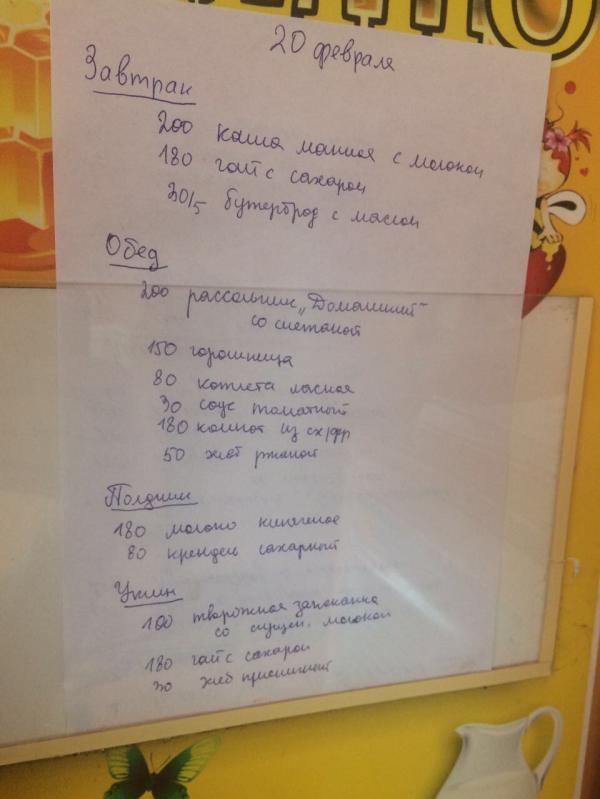 20 февраля
Завтрак
200 каша манная с молоком
180 чай с сахаром
30/5 бутерброд с маслом
Обед
200 рассольник „Домашний"
со сметаной
150 горошница
80 котлета мясная
30 соус томатный
180 компот из сх/фр
50 хлеб ржаной
Полдник
180 молоко кипяченое
80 крендель сахарный
Ужин
100 творожная запеканка
со сгущен. молоком
180 чай с сахаром
30 хлеб пшеничный